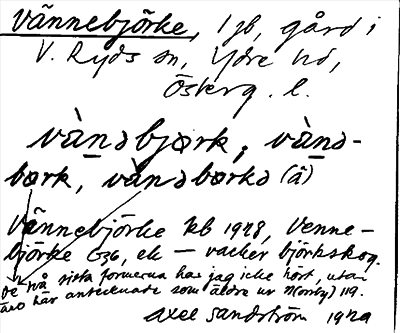 Vännebjörke, 1 jb, gård i
V. Ryds sn, Ydre hd,
Österg. l.
vànəbjørk, vànə-
børk, vànəbørkə (ä)
Vännebjörke kb 1928, Venne-
björke G36, ek – vacker björkskog.
De två sista formerna har jag icke hört, utan
äro här antecknade som äldre ur N(oréy) 119.
Axel Sandström 1929